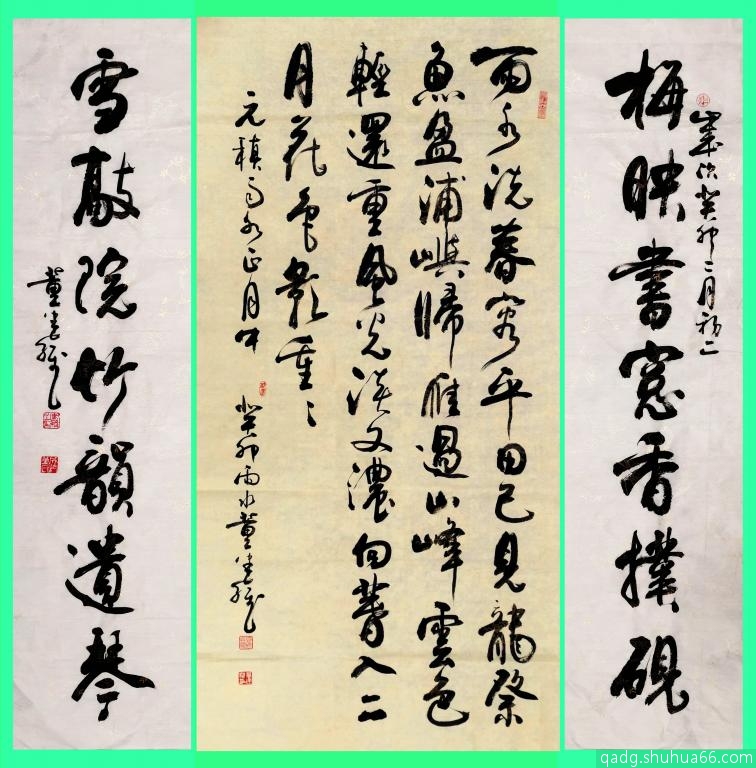 梅映書窓香撲硯
歲次癸卯二月初二
雨水洗春容平田已見龍祭
魚盈浦嶼歸雁過山峰雲色
輕還重風光淡又濃向春入二
月花色影重〻
元稹雨水正月中
癸卯雨水董
雪敲院竹韻遺琴
董
qadg.shuhua66.com